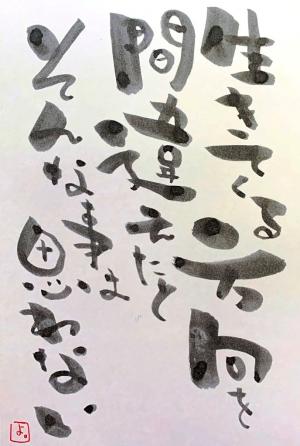 生きてる方向を
間違えたと
そんな事は思わない
よ。